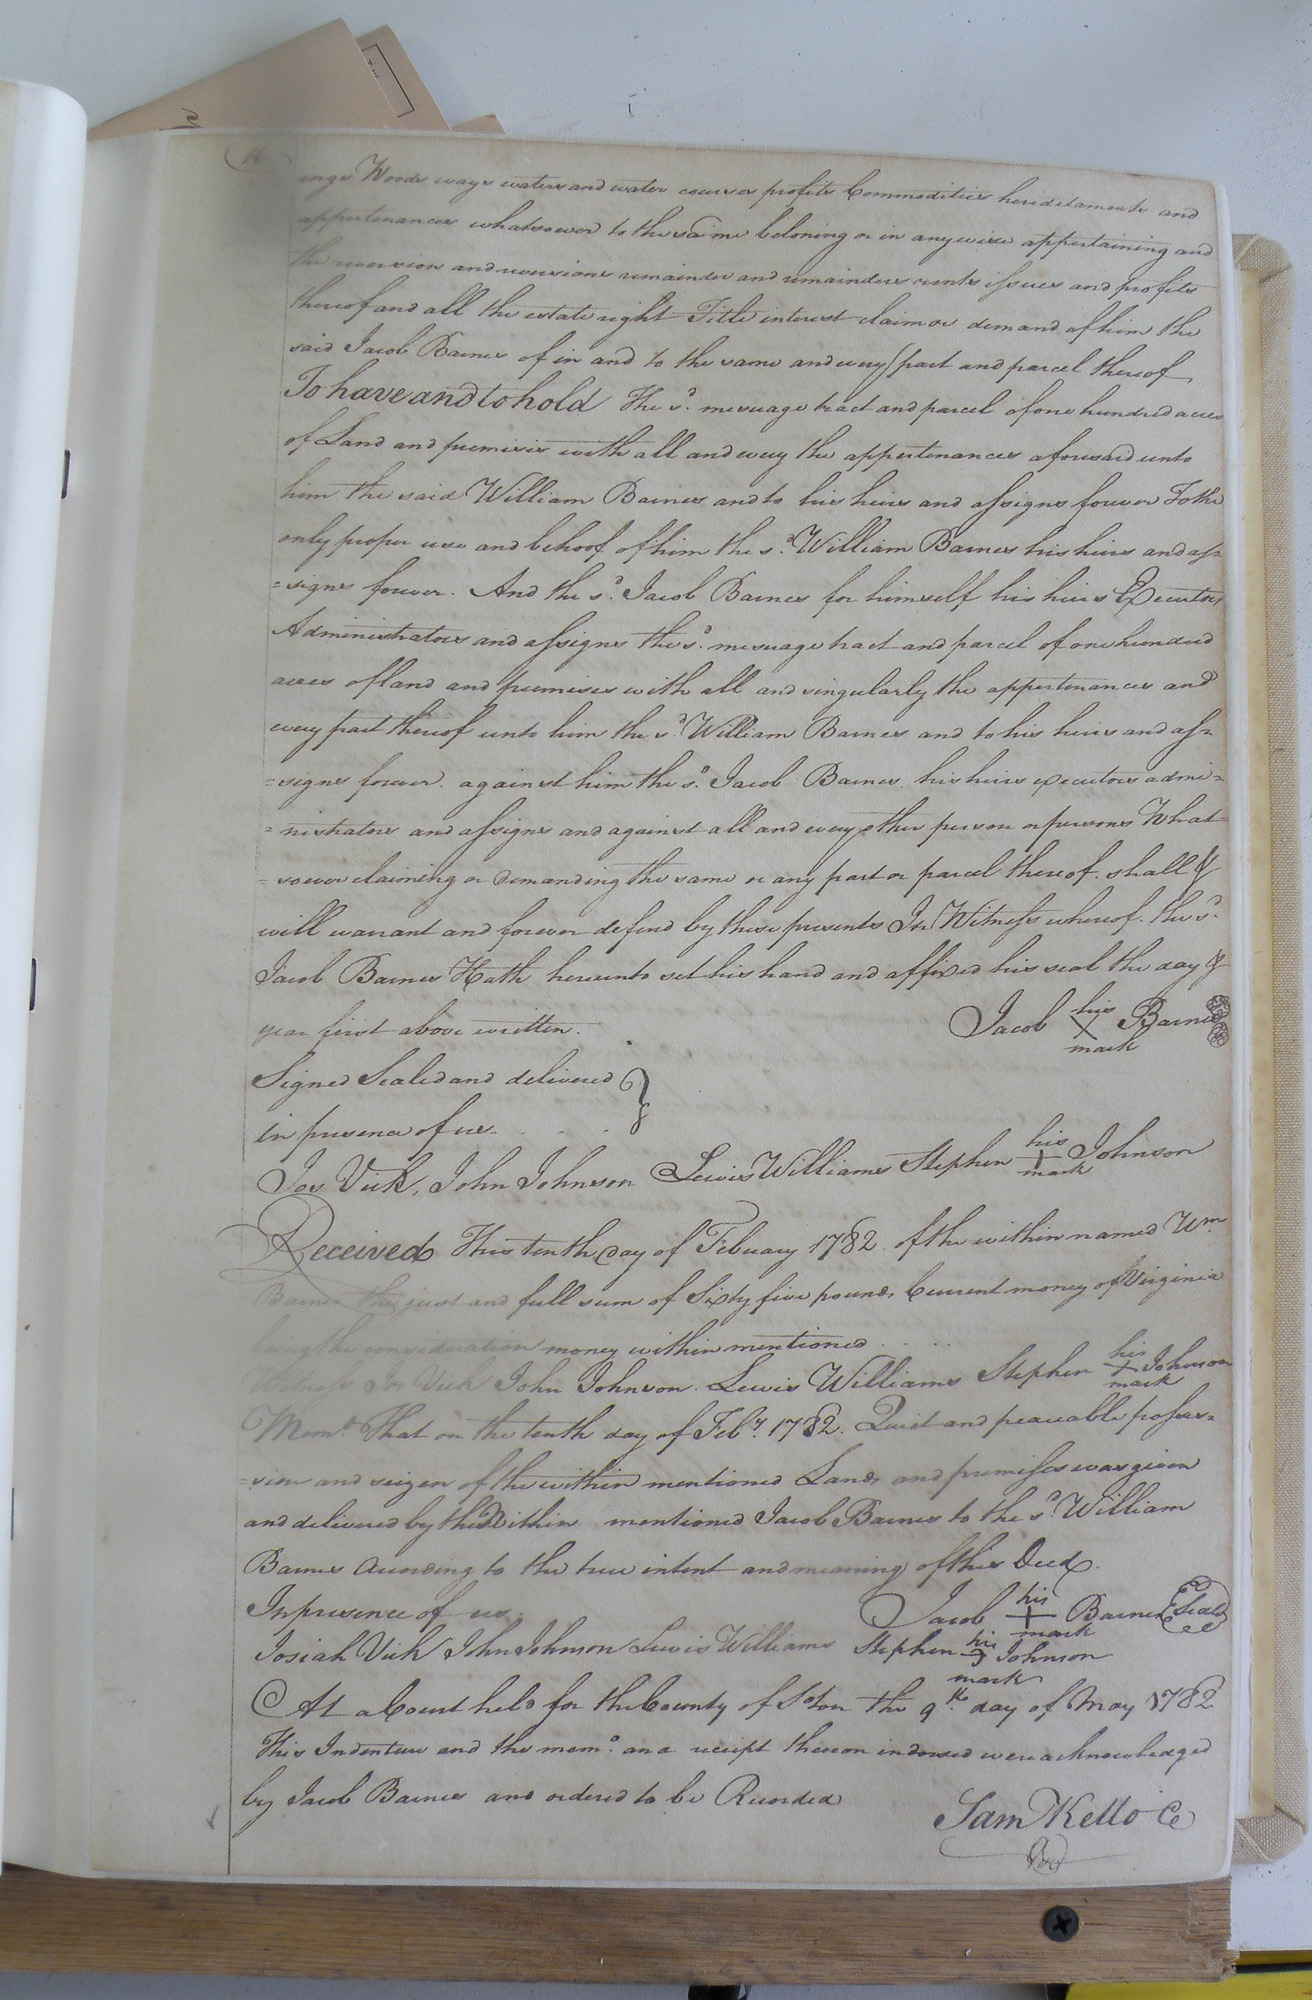 ings Woods ways waters and water courses profits Commodities hereditaments and
appertenances whatsoever to the same beloning or in anywise appertaining and
the reversion and reversions remainder and remainders rents issues and profits
thereof and all the estate right Title interest claim or demand of him the
said Jacob Barnes of in and to the same and every part and parcel thereof
To have and to hold the sd. mesuage tract and parcel of one hundred acres
of Land and premises with all and every the appertenances aforesaid unto
him the said William Barnes and to his heirs and assigns forever To the
only proper use and behoof of him the sd. William Barnes his heirs and as=
=signs forever. And the sd. Jacob Barnes for himself his heirs Executors
Administrators and assigns the sd. mesuage tract and parcel of one hundred
acres of land and premises with all and singularly the appertenances and
every part thereof unto him the sd. William Barnes and to his heirs and as=
=signs forever. against him the sd. Jacob Barnes his heirs executors admi=
=nistrators and assigns and against all and every other person or persons What=
=soever claiming or demanding the same or any part or parcel thereof. shall &
will warrant and forever defend by these presents In Witness whereof. the sd.
Jacob Barnes Hath hereunto set his hand and affixed his seal the day &
year first above written.
Jacob his X mark Barnes
Signed Sealed and delivered
in presence of us
Jos Vick, John Johnson Lewis Williams Stephen his + mark Johnson
Received This tenth day of Febuary 1782 of the within named Wm
Barnes the just and full sum of Sixty five pounds Current money of Virginia
being the consideration money within mentioned
Witness Jos Vick John Johnson. Lewis Williams Stephen his + mark Johnson
Memo. That on the tenth day of Feby. 1782. Quiet and peaceable posses=
=sion and seizen of the within mentioned Land, and premises was given
and delivered by the Within mentioned Jacob Barnes to the sd. William
Barnes According to the true intent and meaning of this Deed.
In presence of us.
Jacob his + mark Barnes Seal
Josiah Vick John Johnson Lewis Williams Stephen his + mark Johnson
At a Court held for the County of Soton the 9th. day of May 1782
This Indenture and the memo. and receipt thereon indorsed were acknowledged
by Jacob Barnes and ordered to be Recorded
Sam Kello C